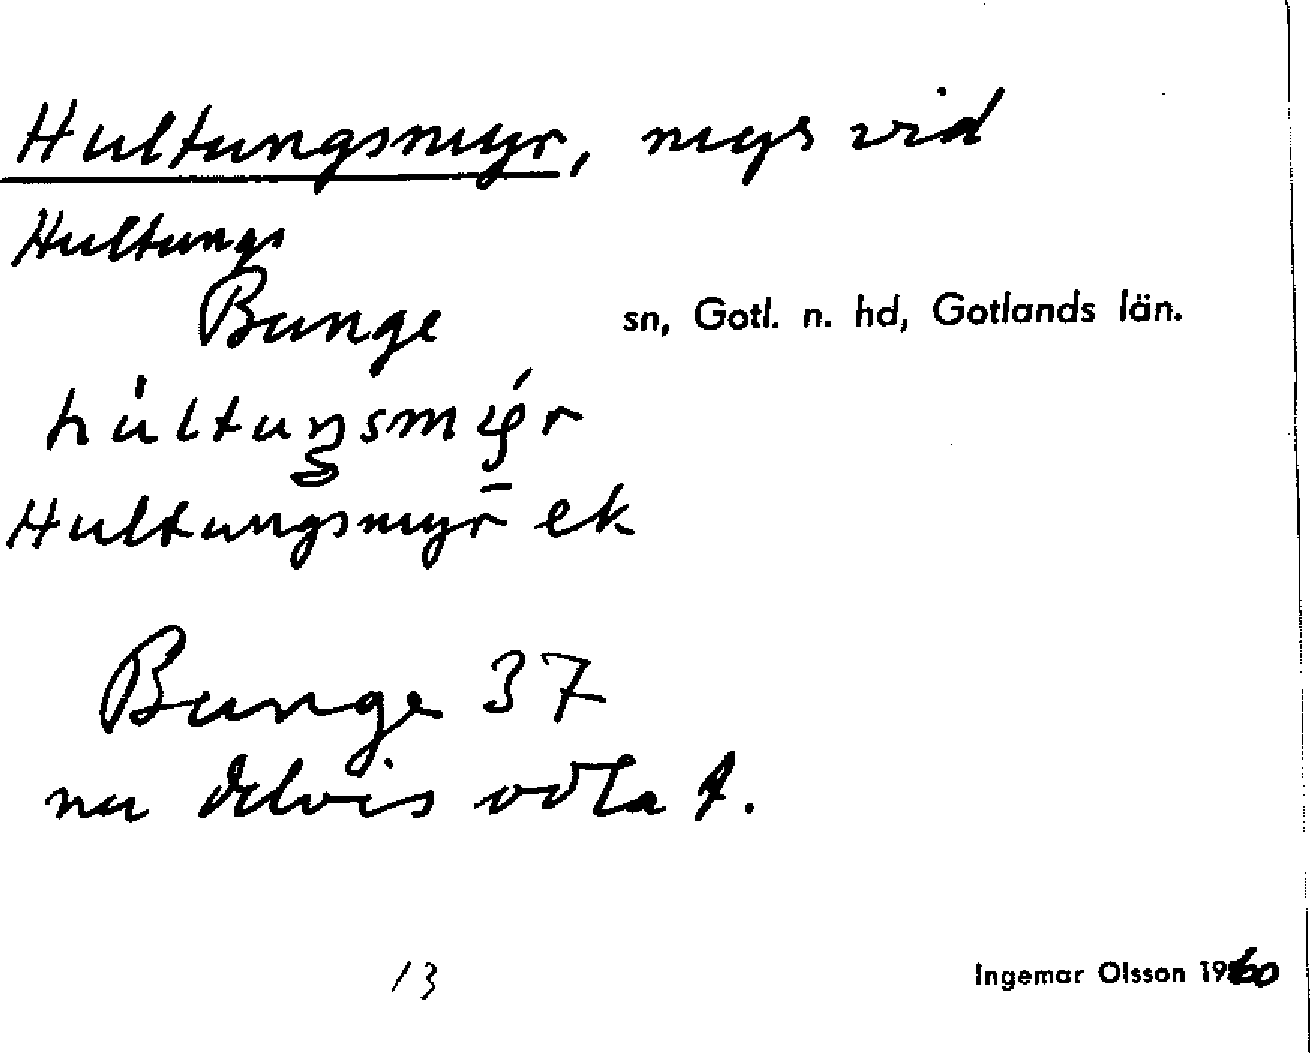 Hultungsmyr, myr vid
Hultungs
Bunge sn, Gotl. n. hd, Gotlands län.
hultuŋsmýr
Hultungsmyr ek
Bunge 37
nu delvis odlat.
13
Ingemar Olsson 1960